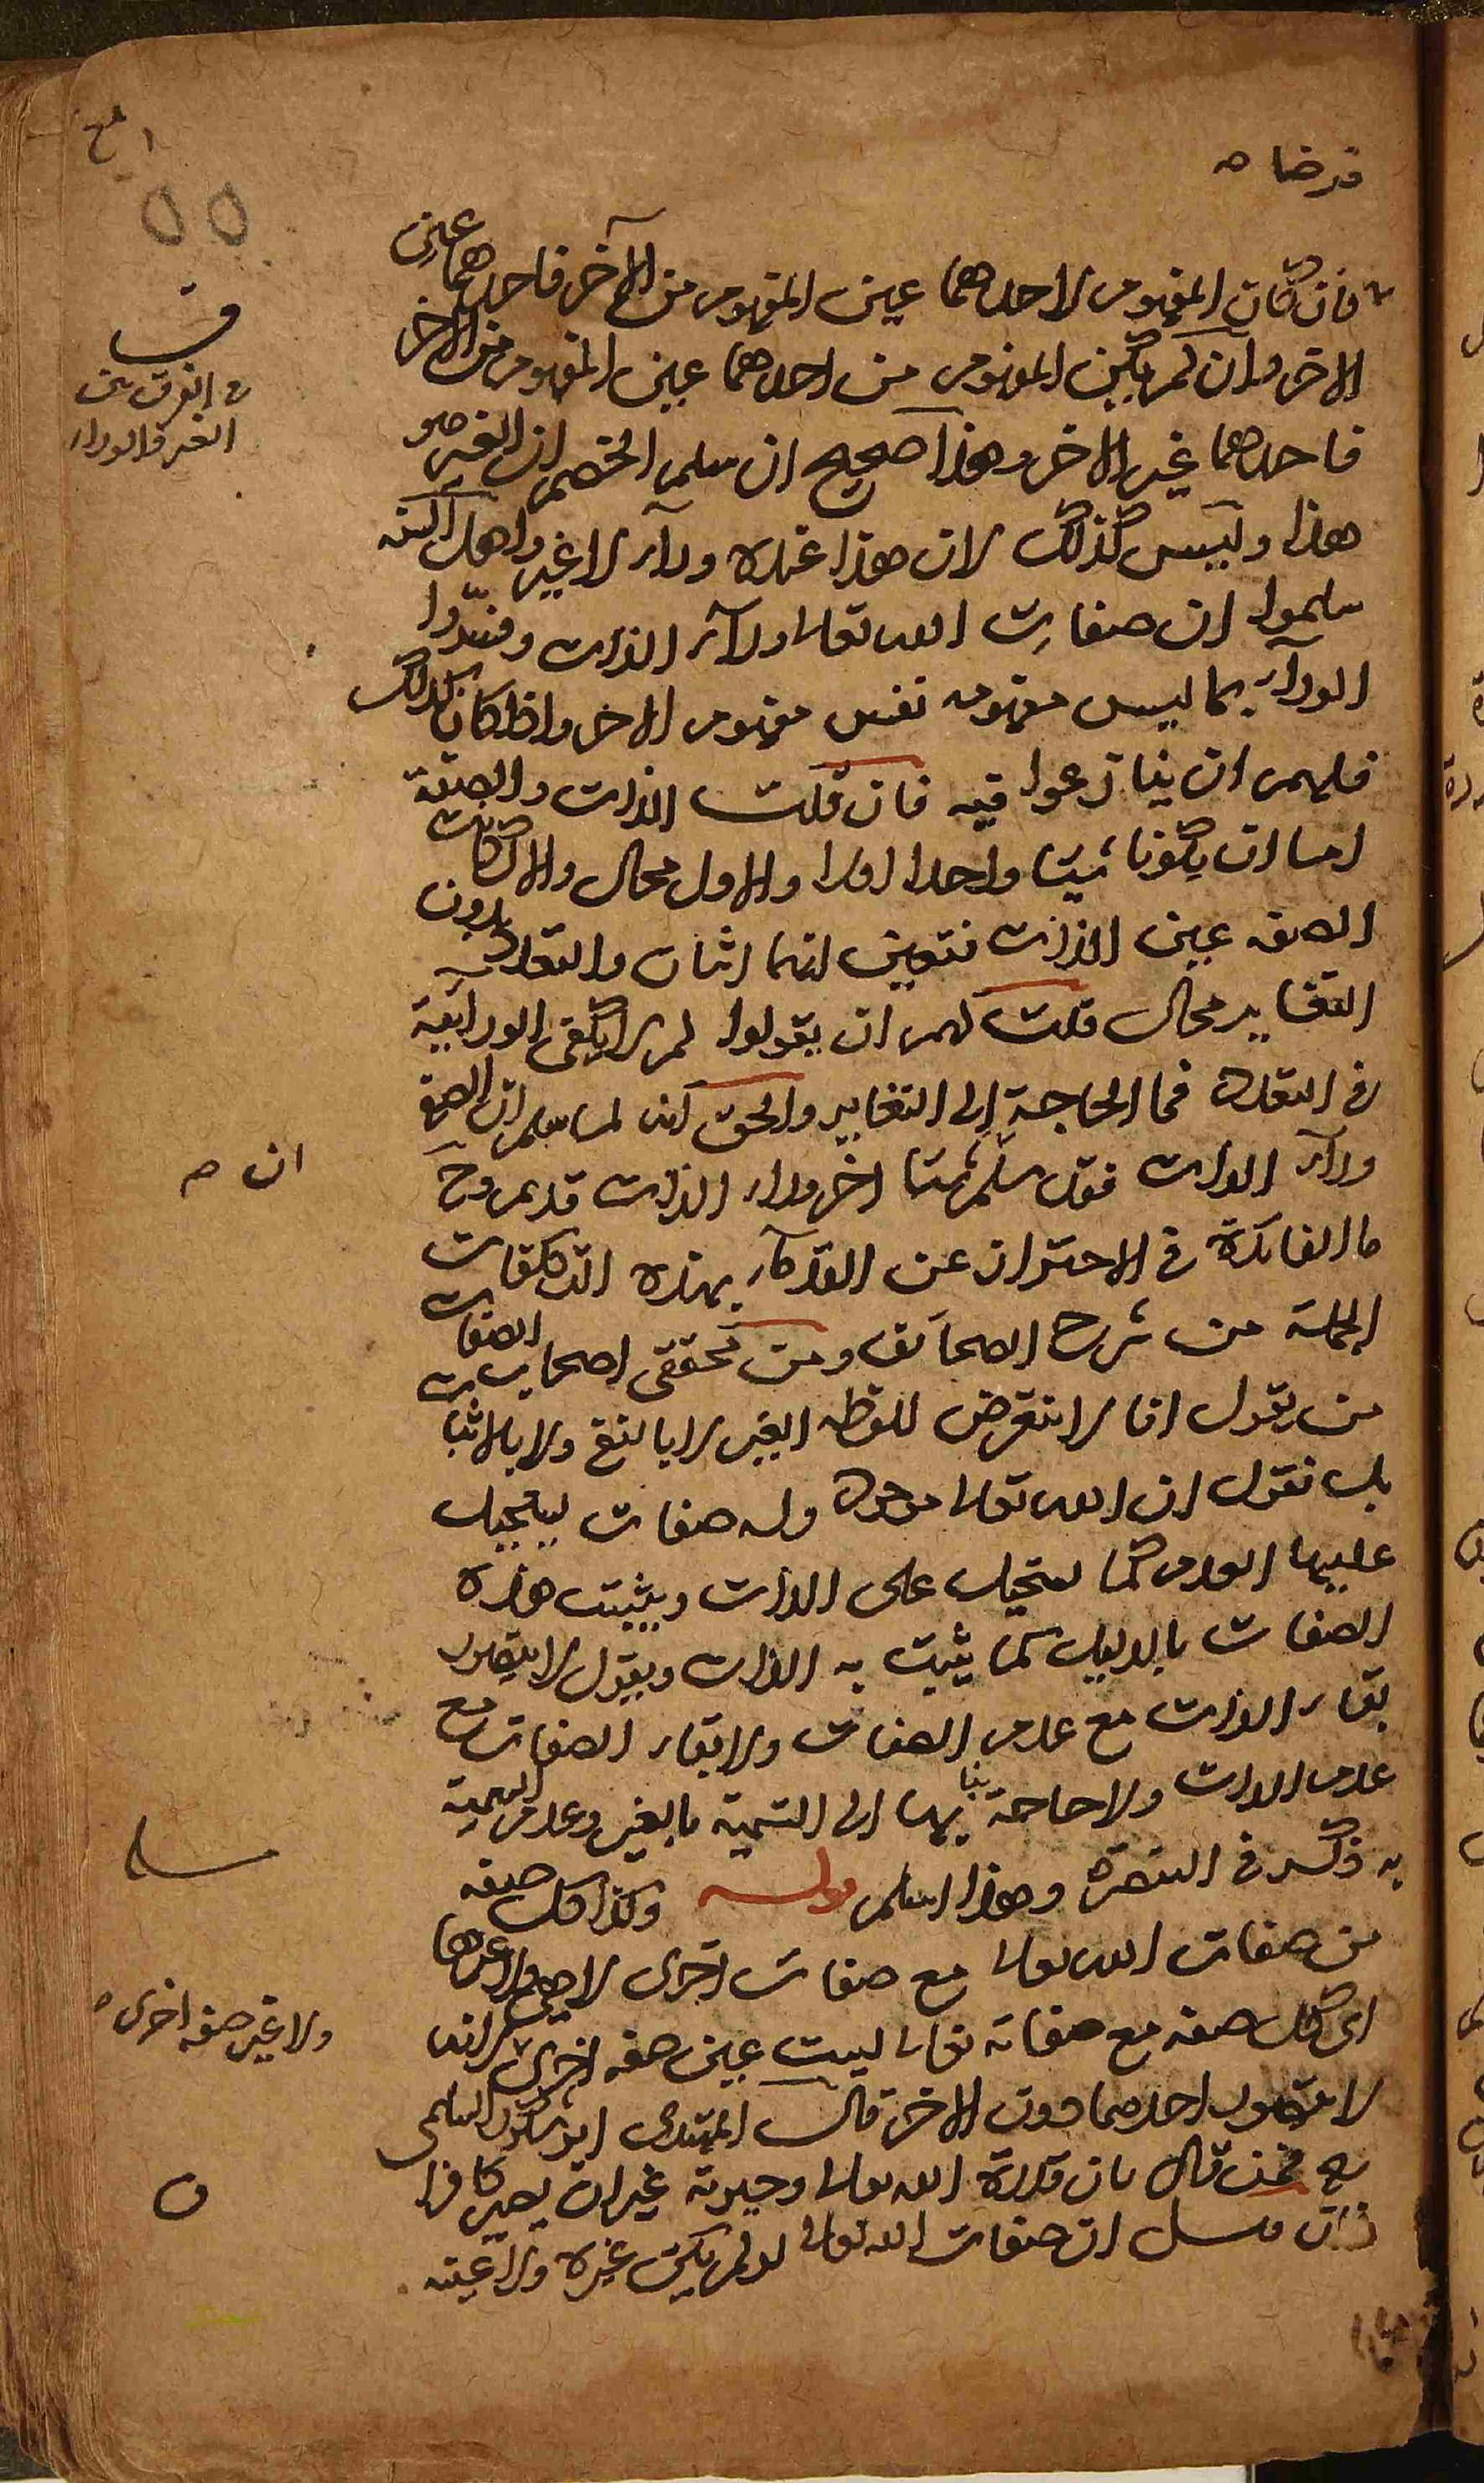 فرضا صہ
فان كان المفهوم لاحدهما عين المفهوم من الآخر فاحدهما عين
الاخر وان لم يكن المفهوم من احدهما عين المفهوم من الاخر
فاحدهما غير الاخر وهذا صحيح ان سلم الخصم ان الغير هو
هذا وليس كذلك لان هذا عنده ورآء لا غير واهل السنة
سلموا ان صفات الله تعالى ورآء الذات وفسروا
الورآء بما ليس مفهومه نفس مفهوم الاخر واذا كان كذلك
فلهم ان ينازعوا فيه فان قلت الذات والصفة
اما ان يكونا شيئا واحدا اولا والاول محال والا لكانت
الصفه عين الذات فتعين انهما اثنان والتعدد بدون
التغاير محال قلت لهم ان يقولوا لم لا يكفى الورائية
فى التعدد فما الحاجة الى التغاير والحق انه لما سلم ان الصفة
ورآء الذات فقد سلم شيئا اخر وراء الذات قديم وح
ما الفائدة فى الاحتراز عن القدمآء بهذه التكلفات
الجملة من شرح الصحائف ومن محققى اصحاب الصفات
من يقول انا لا نتعرض للفظه الغير لا بالنفى ولا بالاثبات
بل نقول ان الله تعالى موجود وله صفات يستحيل
عليها العدم كما يستحيل على الذات ويثبت هذه
الصفات بالدليل كما يثبت به الذات ويقول لا يتصور
بقاء الذات مع عدم الصفات ولا بقاء الصفات مع
عدم الذات ولا حاجة بنا الى التسمية بالغير وعدم التسمية
به ذكره فى التبصرة وهذا اسلم قوله وكذا كل صفه
من صفات الله تعالى مع صفات اخرى لا هى ولا غيرها
اى كل صفه مع صفاته تعالى ليست عين صفه اخرى لانه
لا يتصور احدهما دون الاخر قال المهتدى ابو شكور السالمى
رح فمن قال بان قدرة الله تعالى وحيوته غيران يصير كافرا
فان قيل ان صفات الله تعالى لو لم يكن غيره ولا عينه
٥٥
ف
فى الفرق بين
الغير والوراء
ان صہ
ولا غير صفه اخرى